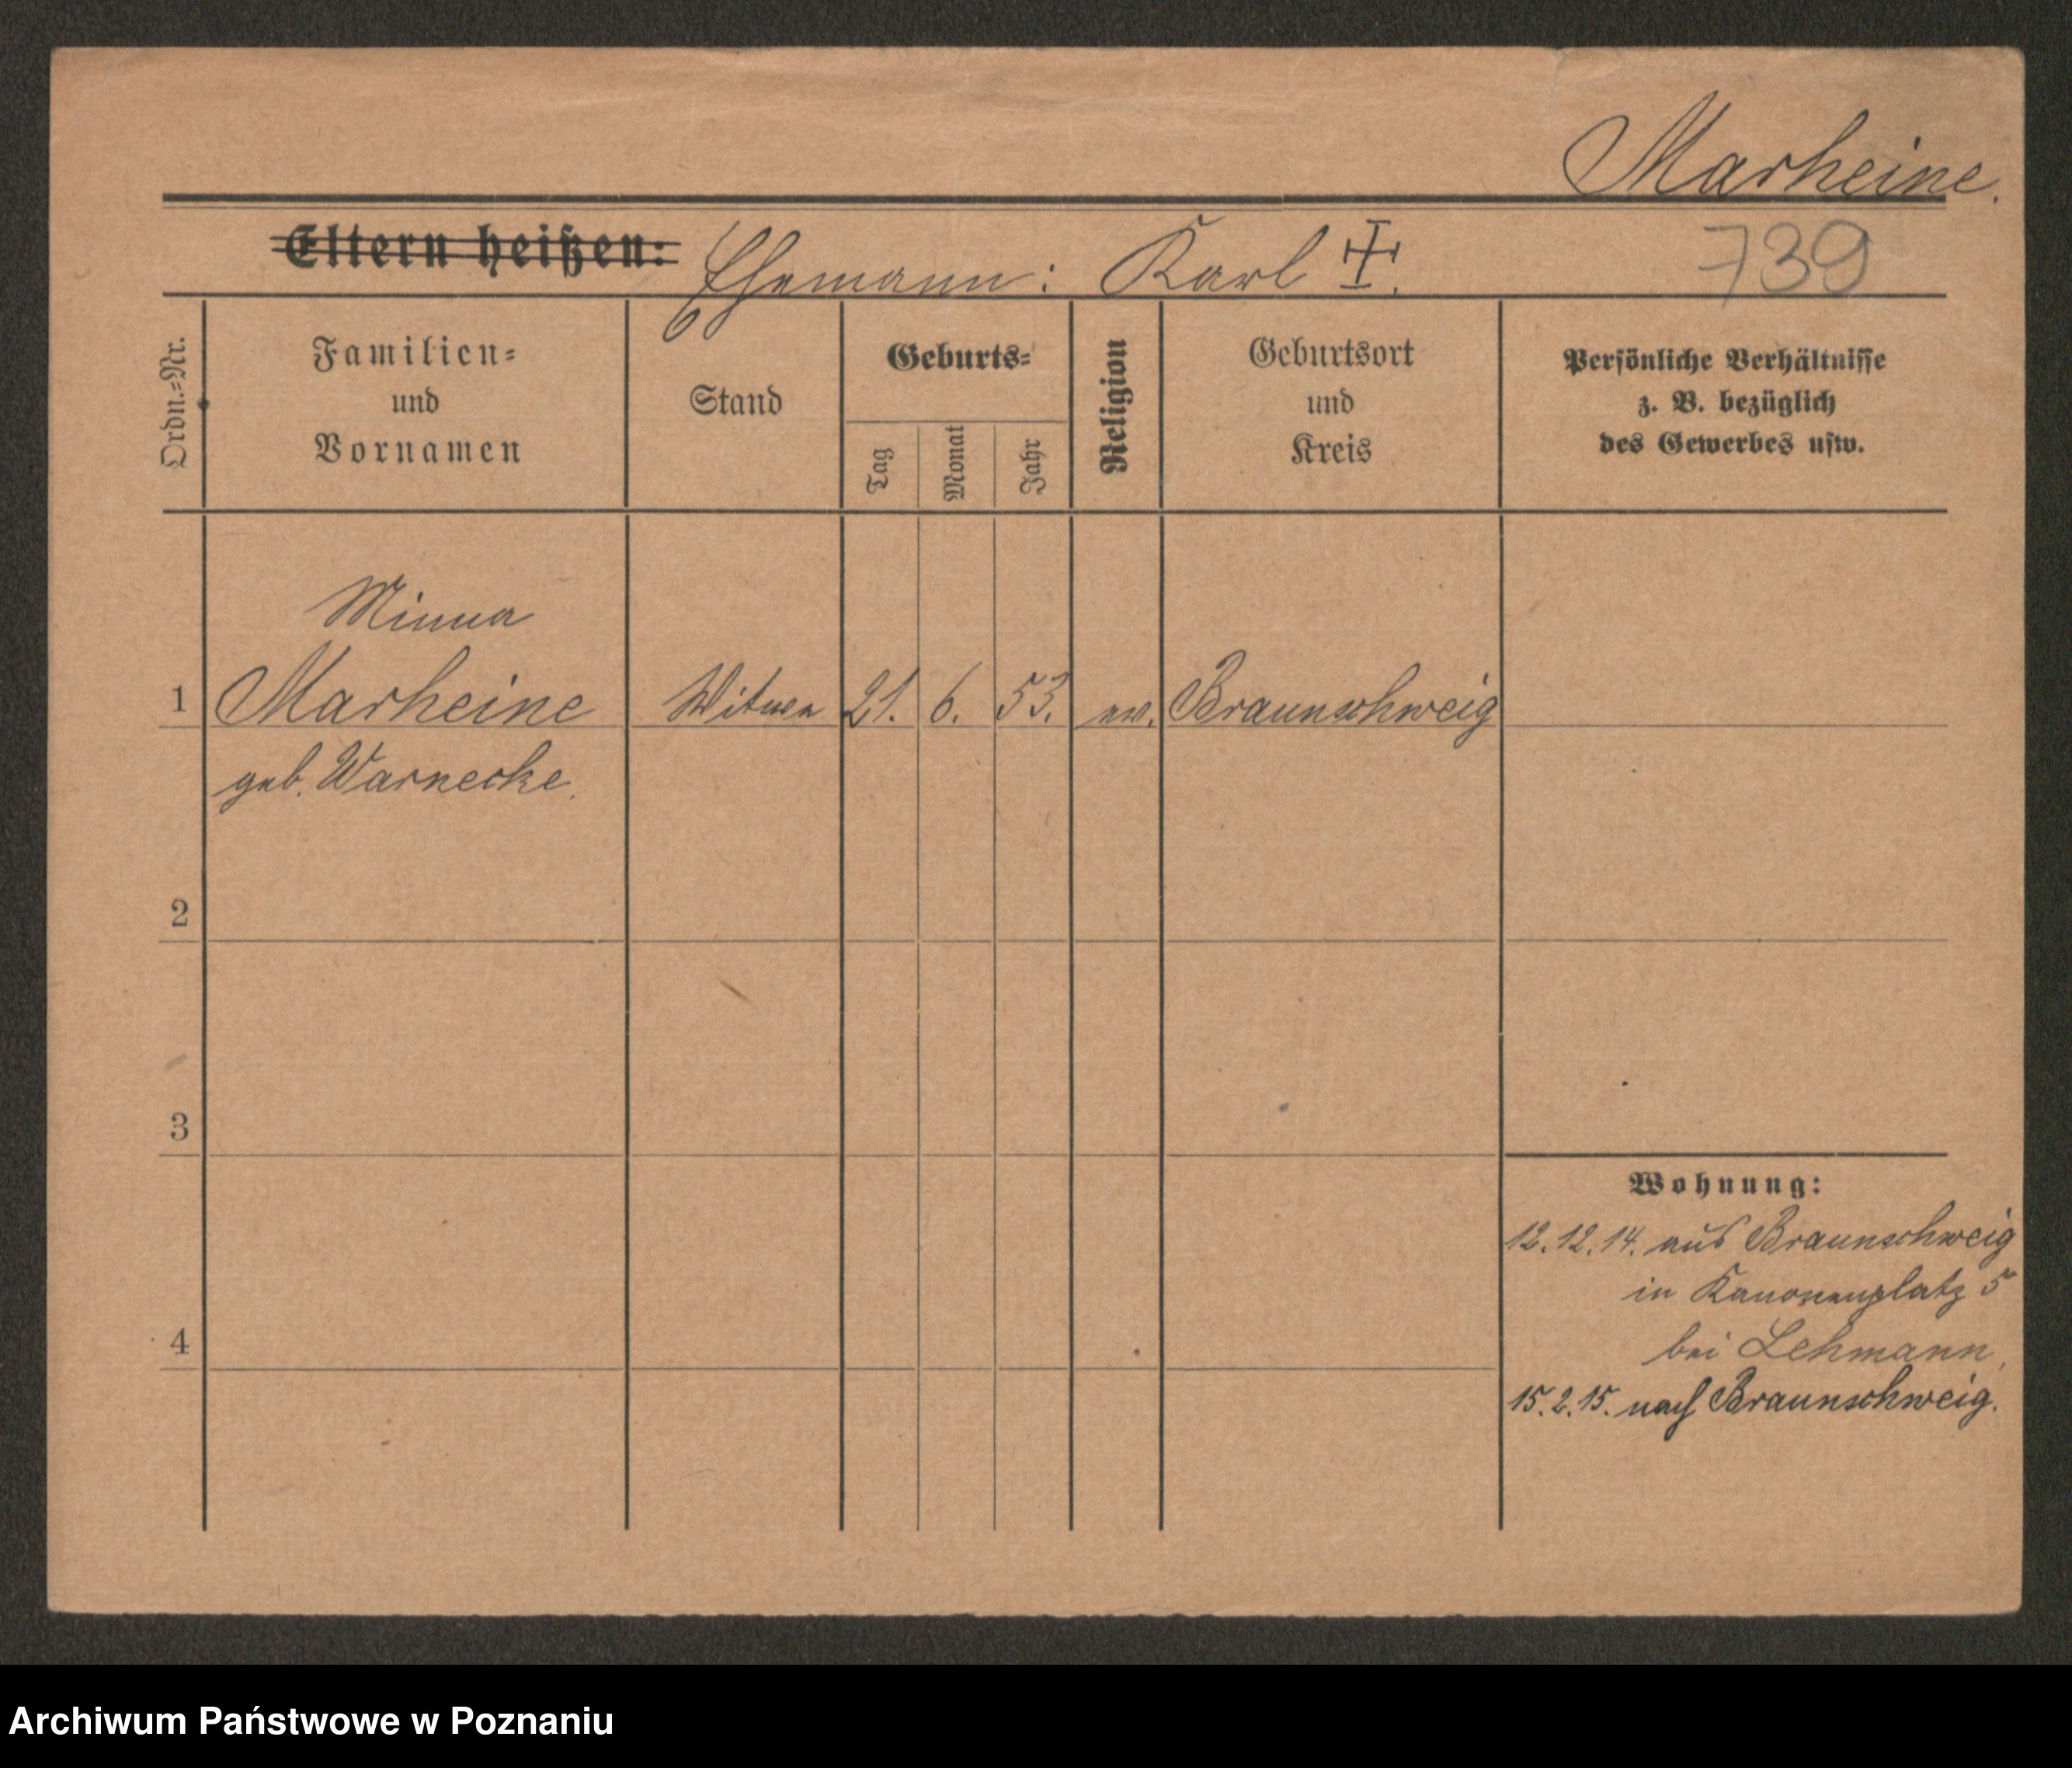 Marheine.
Eltern heißen: Ehemann: Karl ✝. 739
Ordn.=Nr.
Familien=
und
Vornamen
Stand
Geburts=
Tag
Monat
Jahr
Religion
Geburtsort
und
Kreis
Persönliche Verhältnisse
z. B. bezüglich
des Gewerbes usw.
Minna
1 Marheine Witwe 21. 6. 53. ev. Braunschweig
geb. Warnecke.
2
3
4
Wohnung:
12.12.14. aus Braunschweig
in Kanonenplatz 5
bei Lehmann,
15.2.15. nach Braunschweig.
Archiwum Państwowe w Poznaniu